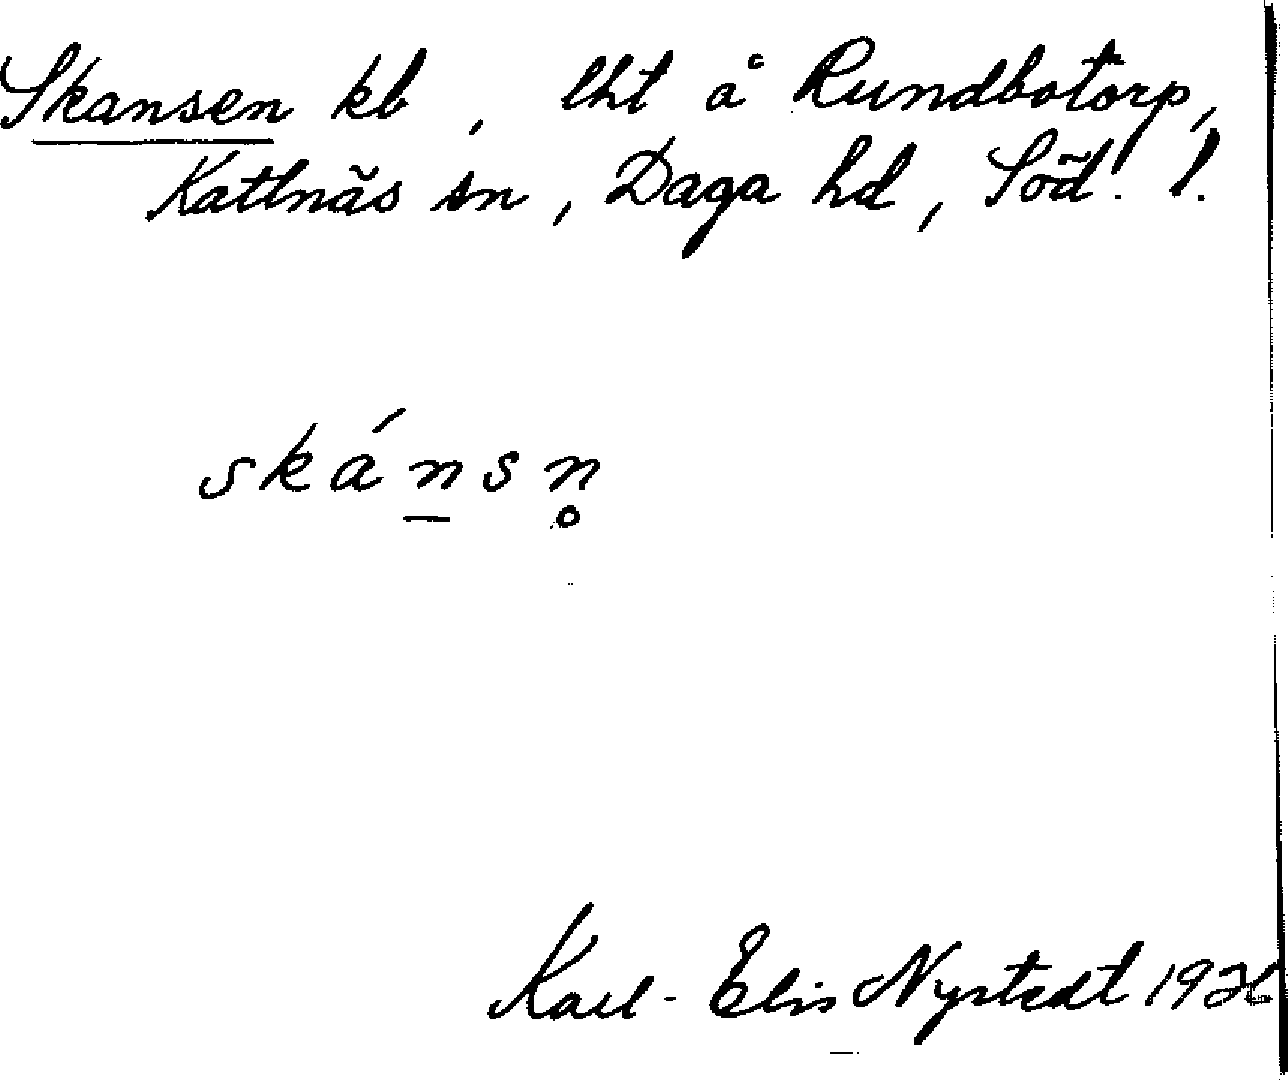 Skansen kb, lht å Rundbotorp,
Kattnäs sn, Daga hd, Söd. l.
skánsn̥
Karl-Elis Nystedt 1926